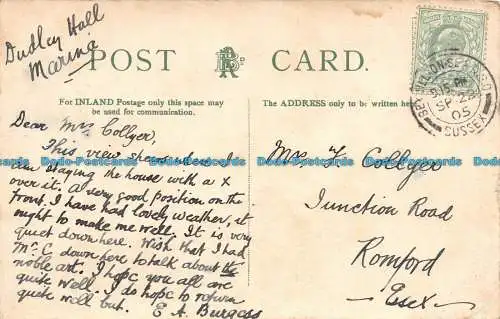 Dudley Hall
Marina
POST CARD.
For INLAND Postage only this space may
be used for communication.
The ADDRESS only to be written here.
Dear Mrs Collyer,
This view shews where I
am staying the house with a x
over it. A very good position on the
front. I have had lovely weather, it
ought to make me well. It is very
quiet down here. Wish that I had
Mr. C down here to talk about the
noble art. I hope you all are
quite well. I do hope to return
quite well but. E A Burgess
Mrs F Collyer
Junction Road
Romford
Essex
BEXHILL-ON-SEA S.O
9.15 PM
SP 28
05
SUSSEX
Dodo-Postcards Dodo-Postcards Dodo-Postcards Dodo-Postcards Dodo-Postcards